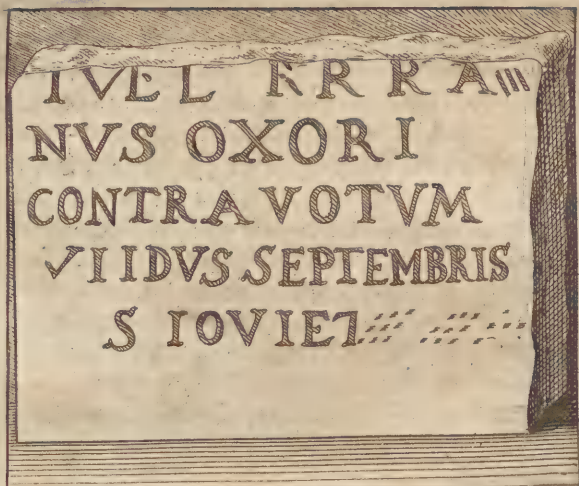 IVEL RRRA
NVS OXORI
CONTRA VOTVM
VI IDVS SEPTEMBRIS
S IOVIET